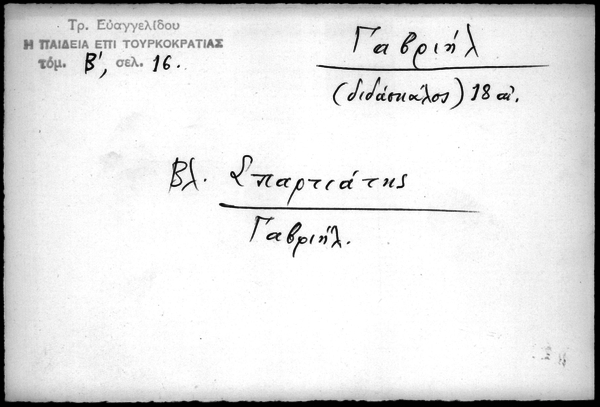 Τρ. Εὐαγγελίδου
Η ΠΑΙΔΕΙΑ ΕΠΙ ΤΟΥΡΚΟΚΡΑΤΙΑΣ
τόμ. Β', σελ. 16.
Γαβριήλ
(διδάσκαλος) 18 αἰ.
Βλ. Σπαρτιάτης
Γαβριήλ.